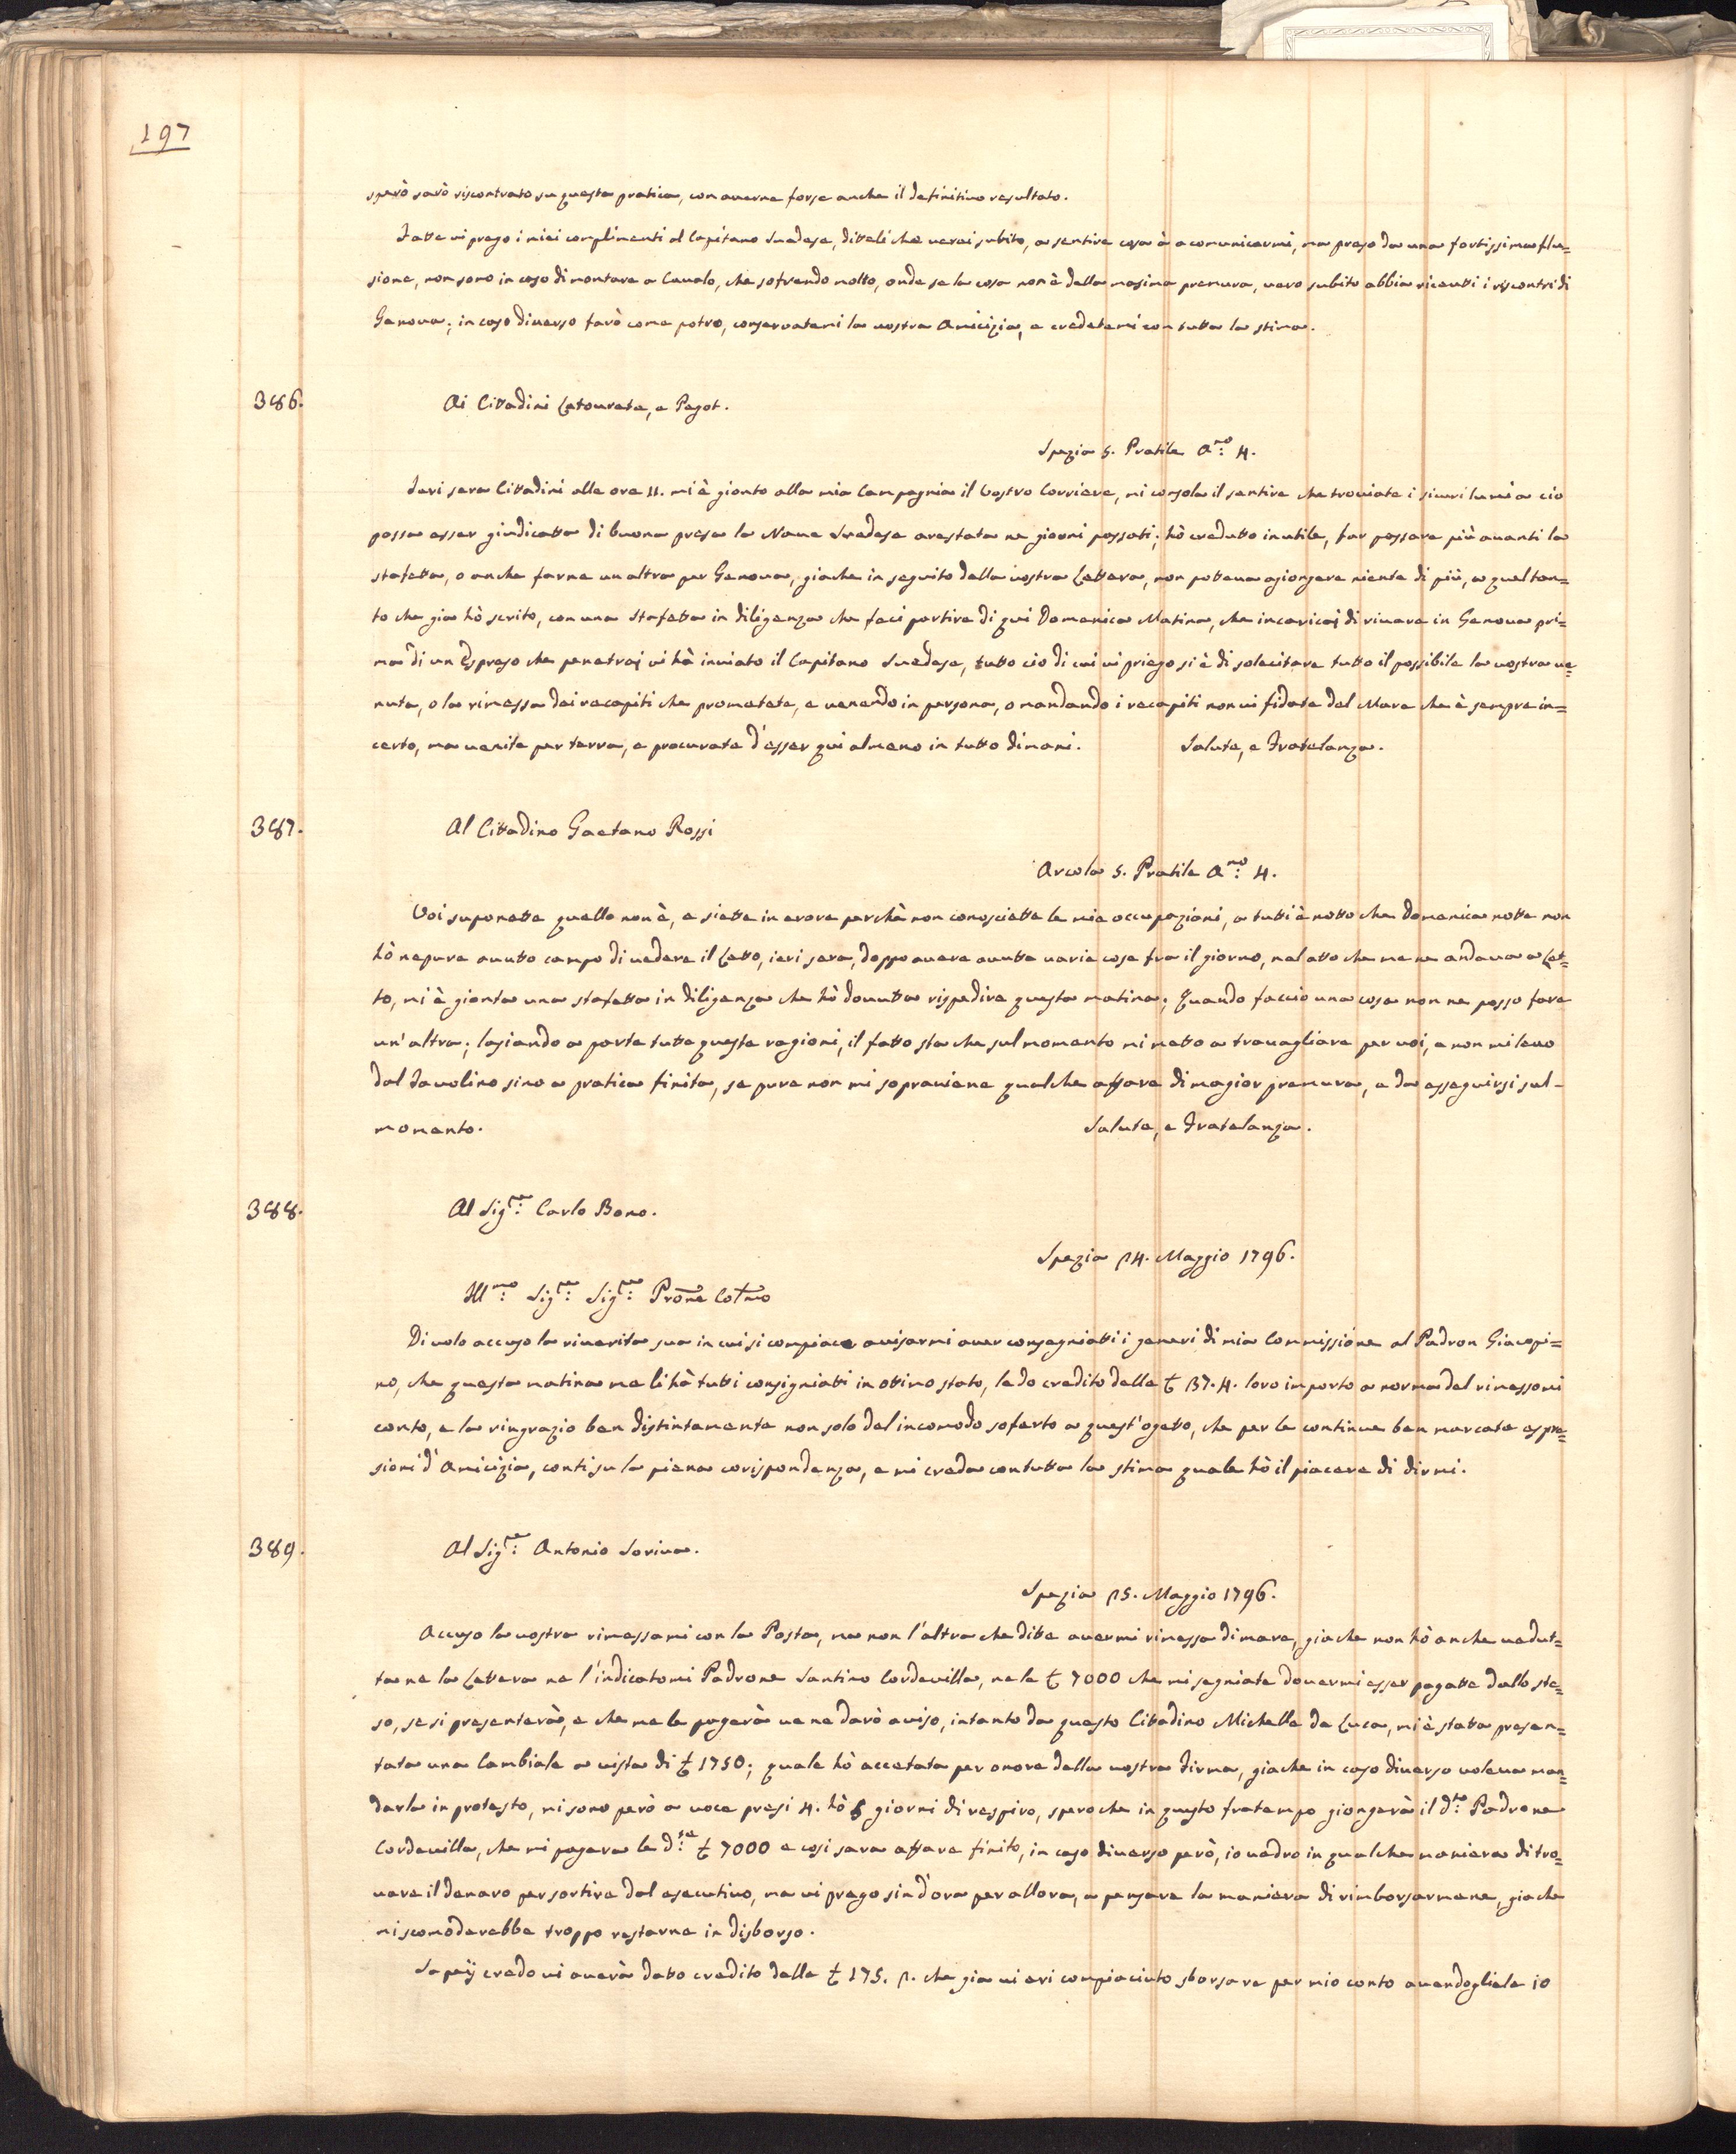 197
sperò sarò riscontrato su questa pratica, con averne forse anche il definitivo resultato.
Fatte vi prego i miei complimenti al Capitano Svedese, ditteli che verei subito, a sentire cosa à a comunicarmi, ma preso da una fortissima flu=
sione, non sono in caso di montare a Cavalo, che sofrendo molto, onde se la cosa non è della masima premura, verò subito abbia ricevuti i riscontri di
Genova; in caso diverso farò come potrò, conservatemi la vostra Amicizia, e credetemi con tutta la stima.
386. Ai Cittadini Latourete, e Pagot.
Spezia 5. Pratile A.no 4.
Ieri sera Cittadini alle ore 11. mi è gionto alla mia Campagnia il Vostro Corriere, mi consola il sentire che troviate i sicuri lumi a ciò
possa esser giudicatta di buona presa la Nave Svedese arestata ne giorni passati; hò credutto inutile, far passare più avanti la
stafetta, o anche farne un altra per Genova, giache in seguito della vostra Lettera, non potteva agiongere niente di più, a quel tan=
to che gia hò scrito, con una stafetta in diligenza che feci partire di qui Domenica Matina, che incaricai di rivare in Genova pri=
ma di un Espreso che penetrai vi hà inviato il Capitano Svedese, tutto ciò di cui vi priego si è di solecitare tutto il possibile la vostra ve=
nuta, o la rimessa dei recapiti che prometete, e venendo in persona, o mandando i recapiti non vi fidate del Mare che è sempre in=
certo, ma venite per terra, e procurate d'esser qui almeno in tutto dimani. Salute, e Fratelanza.
387. Al Cittadino Gaetano Rossi
Arcola 5. Pratile A.no 4.
Voi suponette quello non è, e siette in erore perchè non conosciette le mie occupazioni, a tutti è notto che Domenica notte non
hò nepure avutto campo di vedere il Letto, ieri sera, doppo avere avutte varie cose fra il giorno, nel atto che me ne andava a Let=
to, mi è gionta una stafetta in diligenza che hò dovutta rispedire questa matina; Quando faccio una cosa non ne posso fare
un'altra; lasiando a parte tutte queste ragioni, il fatto sta che sul momento mi metto a travagliare per voi, e non mi levo
dal Tavolino sino a pratica finita, se pure non mi sopraviene qualche affare di magior premura, e da esseguirsi sul-
momento. Salute, e Fratelanza.
388. Al Sig.re Carlo Bono.
Spezia 24. Maggio 1796.
Ill.mo Sig.re Sig.re Prone Colmo
Di volo accuso la riverita sua in cui si compiace avisarmi aver consegniatti i generi di mia Commissione al Padron Giacopi=
no, che questa matina me li hà tutti consigniatti in ottimo stato, le do credito delle £ 137.4. loro importo a norma del rimessomi
conto, e la ringrazio ben distintamente non solo del incomodo soferto a quest'ogetto, che per le continue ben marcate espre=
sioni d'Amicizia, conti su la piena corispondenza, e mi creda con tutta la stima quale hò il piacere di dirmi.
389. Al Sig.re Antonio Soriva.
Spezia 25. Maggio 1796.
Accuso la vostra rimessami con la Posta, ma non l'altra che dite avermi rimessa di mare, giache non hò anche vedut=
ta ne la Lettera ne l'indicatomi Padrone Santino Cordeviolla, ne le £ 7000 che mi segniate dovermi esser pagatte dallo ste=
so, se si presenterà, e che me le pagerà ve ne darò aviso, intanto da questo Cittadino Michelle de Luca, mi è statta presen=
tata una Cambiale a vista di £ 1750; quale hò accetata per onore della vostra Firma, giache in caso diverso voleva man=
darla in protesto, mi sono però a voce presi 4. hò 5 giorni di respiro, spero che in questo fratempo giongerà il d.to Padrone
Cordeviolla, che mi pagara le d.te £ 7000 e cosi sara affare finito, in caso diverso però, io vedrò in qualche maniera di tro=
vare il denaro per sortire dal esecutivo, ma vi prego sin d'ora per allora, a pensare la maniera di rimborsarmene, giache
mi scomoderebbe troppo restarne in disborso.
Sapeij credo vi averà datto credito delle £ 175. 2. che gia vi eri compiaciuto sborsare per mio conto avendogliele io